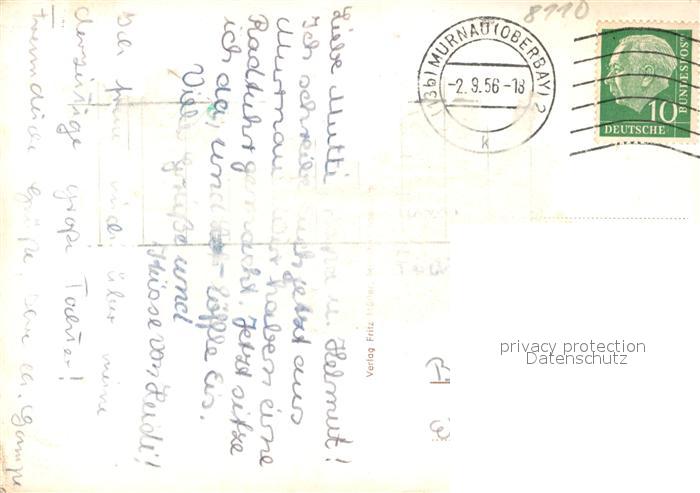 8110
(13b) MURNAU (OBERBAY) 2
-2.9.56-18
k
10
DEUTSCHE
BUNDESPOST
Liebe Mutti u. Helmut!
Ich schreibe Euch jetzt aus
Murnau. Wir haben eine
Radfahrt gemacht. Jetzt sitze
ich da, und löffle Eis.
Viele Grüße und
Küsse von Heidi!
Ich freue mich über meine
derzeitige große Tochter!
Freundliche Grüße,
Verlag Fritz
privacy protection
Datenschutz